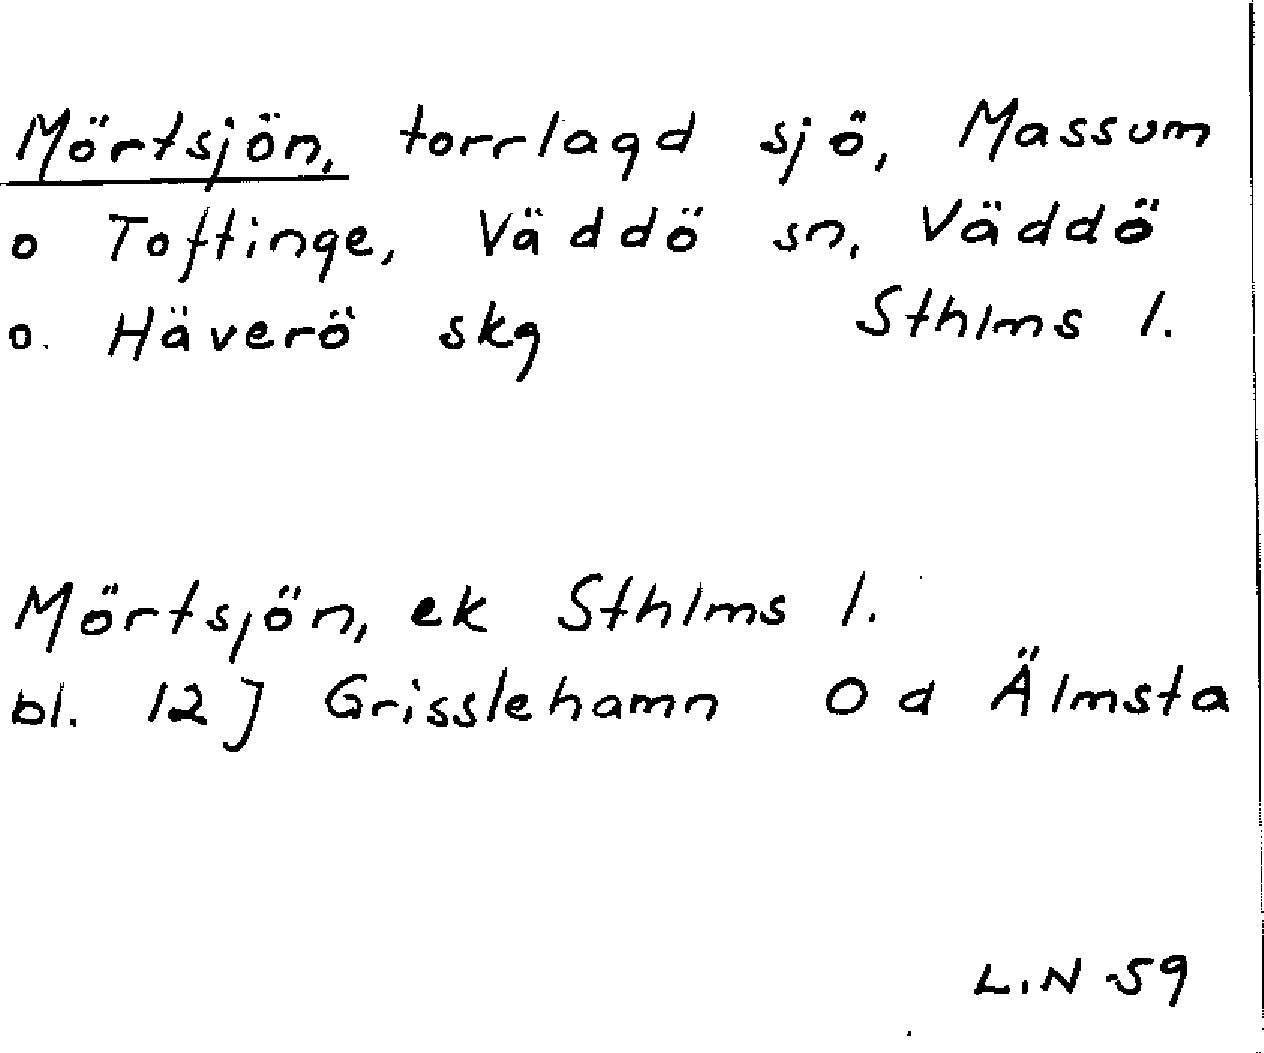 Mörtsjön, torrlagd sjö, Massum
o Toftinge, Väddö sn, Väddö
o. Häverö skg Sthlms l.
Mörtsjön, ek Sthlms l.
bl. 12 J Grisslehamn O d Älmsta
L.N -59